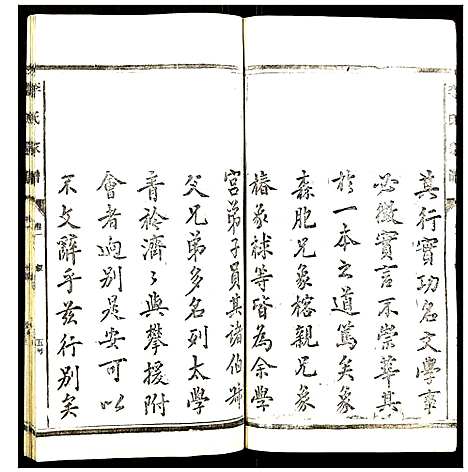 其行實功名文學事
必徵實言不崇華其
於一本之道篤矣象
森胞兄象榕親兄象
椿象球等皆為余學
宮弟子員其諸伯叔
父兄弟多名列太學
青衿濟〻與攀援附
會者迥別是安可以
不文辭乎茲行別矣
李氏宗譜